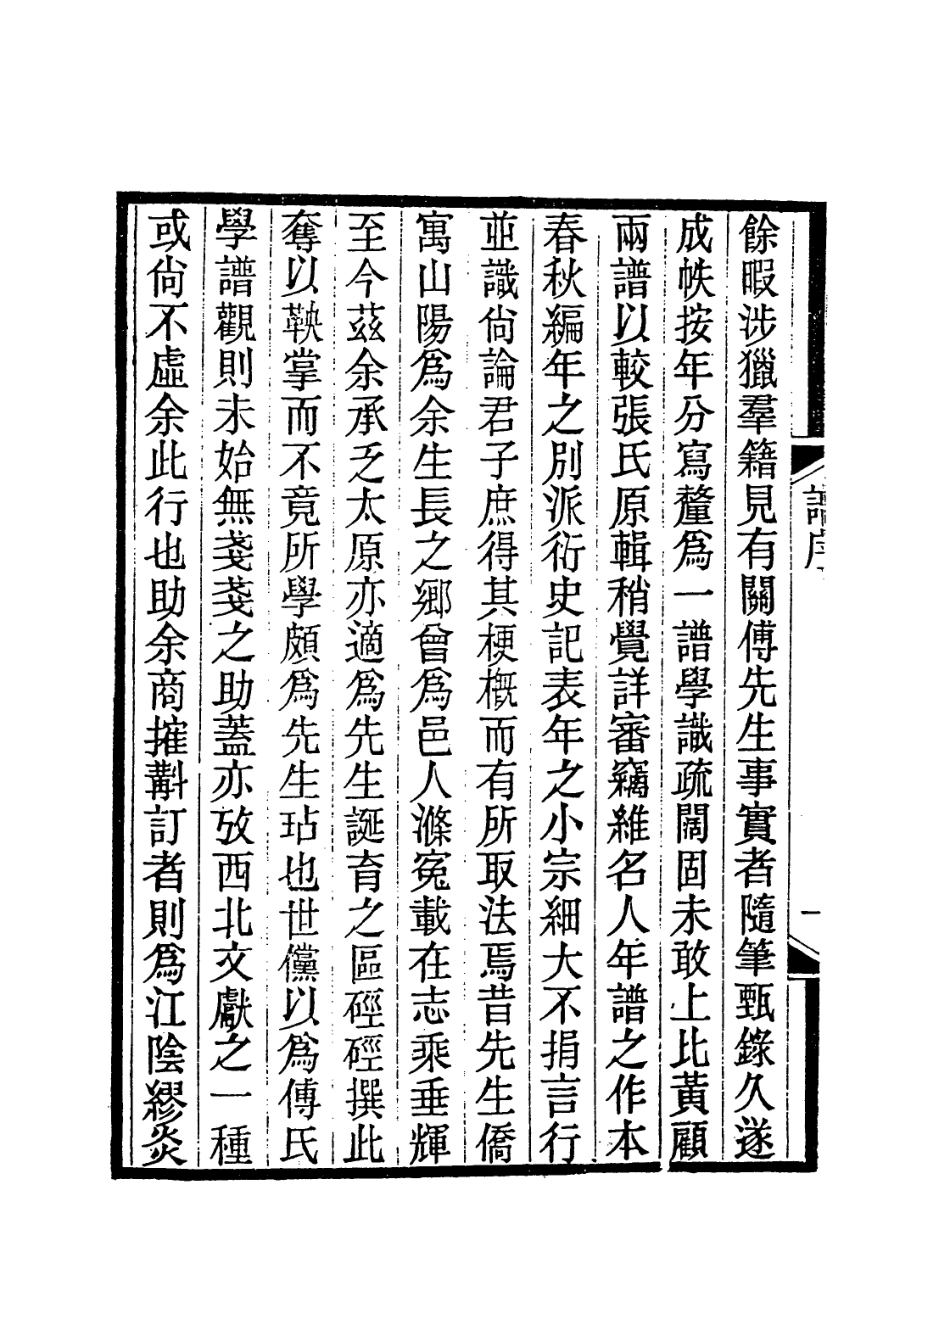 譜序
一
餘暇涉獵羣籍見有關傅先生事實者隨筆甄錄久遂
成帙按年分寫釐爲一譜學識疏闊固未敢上比黃顧
兩譜以較張氏原輯稍覺詳審竊維名人年譜之作本
春秋編年之別派衍史記表年之小宗細大不捐言行
並識尙論君子庶得其梗槪而有所取法焉昔先生僑
寓山陽爲余生長之鄉曾爲邑人滌冤載在志乘垂輝
至今茲余承乏太原亦適爲先生誕育之區硜硜撰此
奪以鞅掌而不竟所學頗爲先生玷也世儻以爲傅氏
學譜觀則未始無戔戔之助蓋亦攷西北文獻之一種
或尙不虛余此行也助余商搉斠訂者則爲江陰繆炎